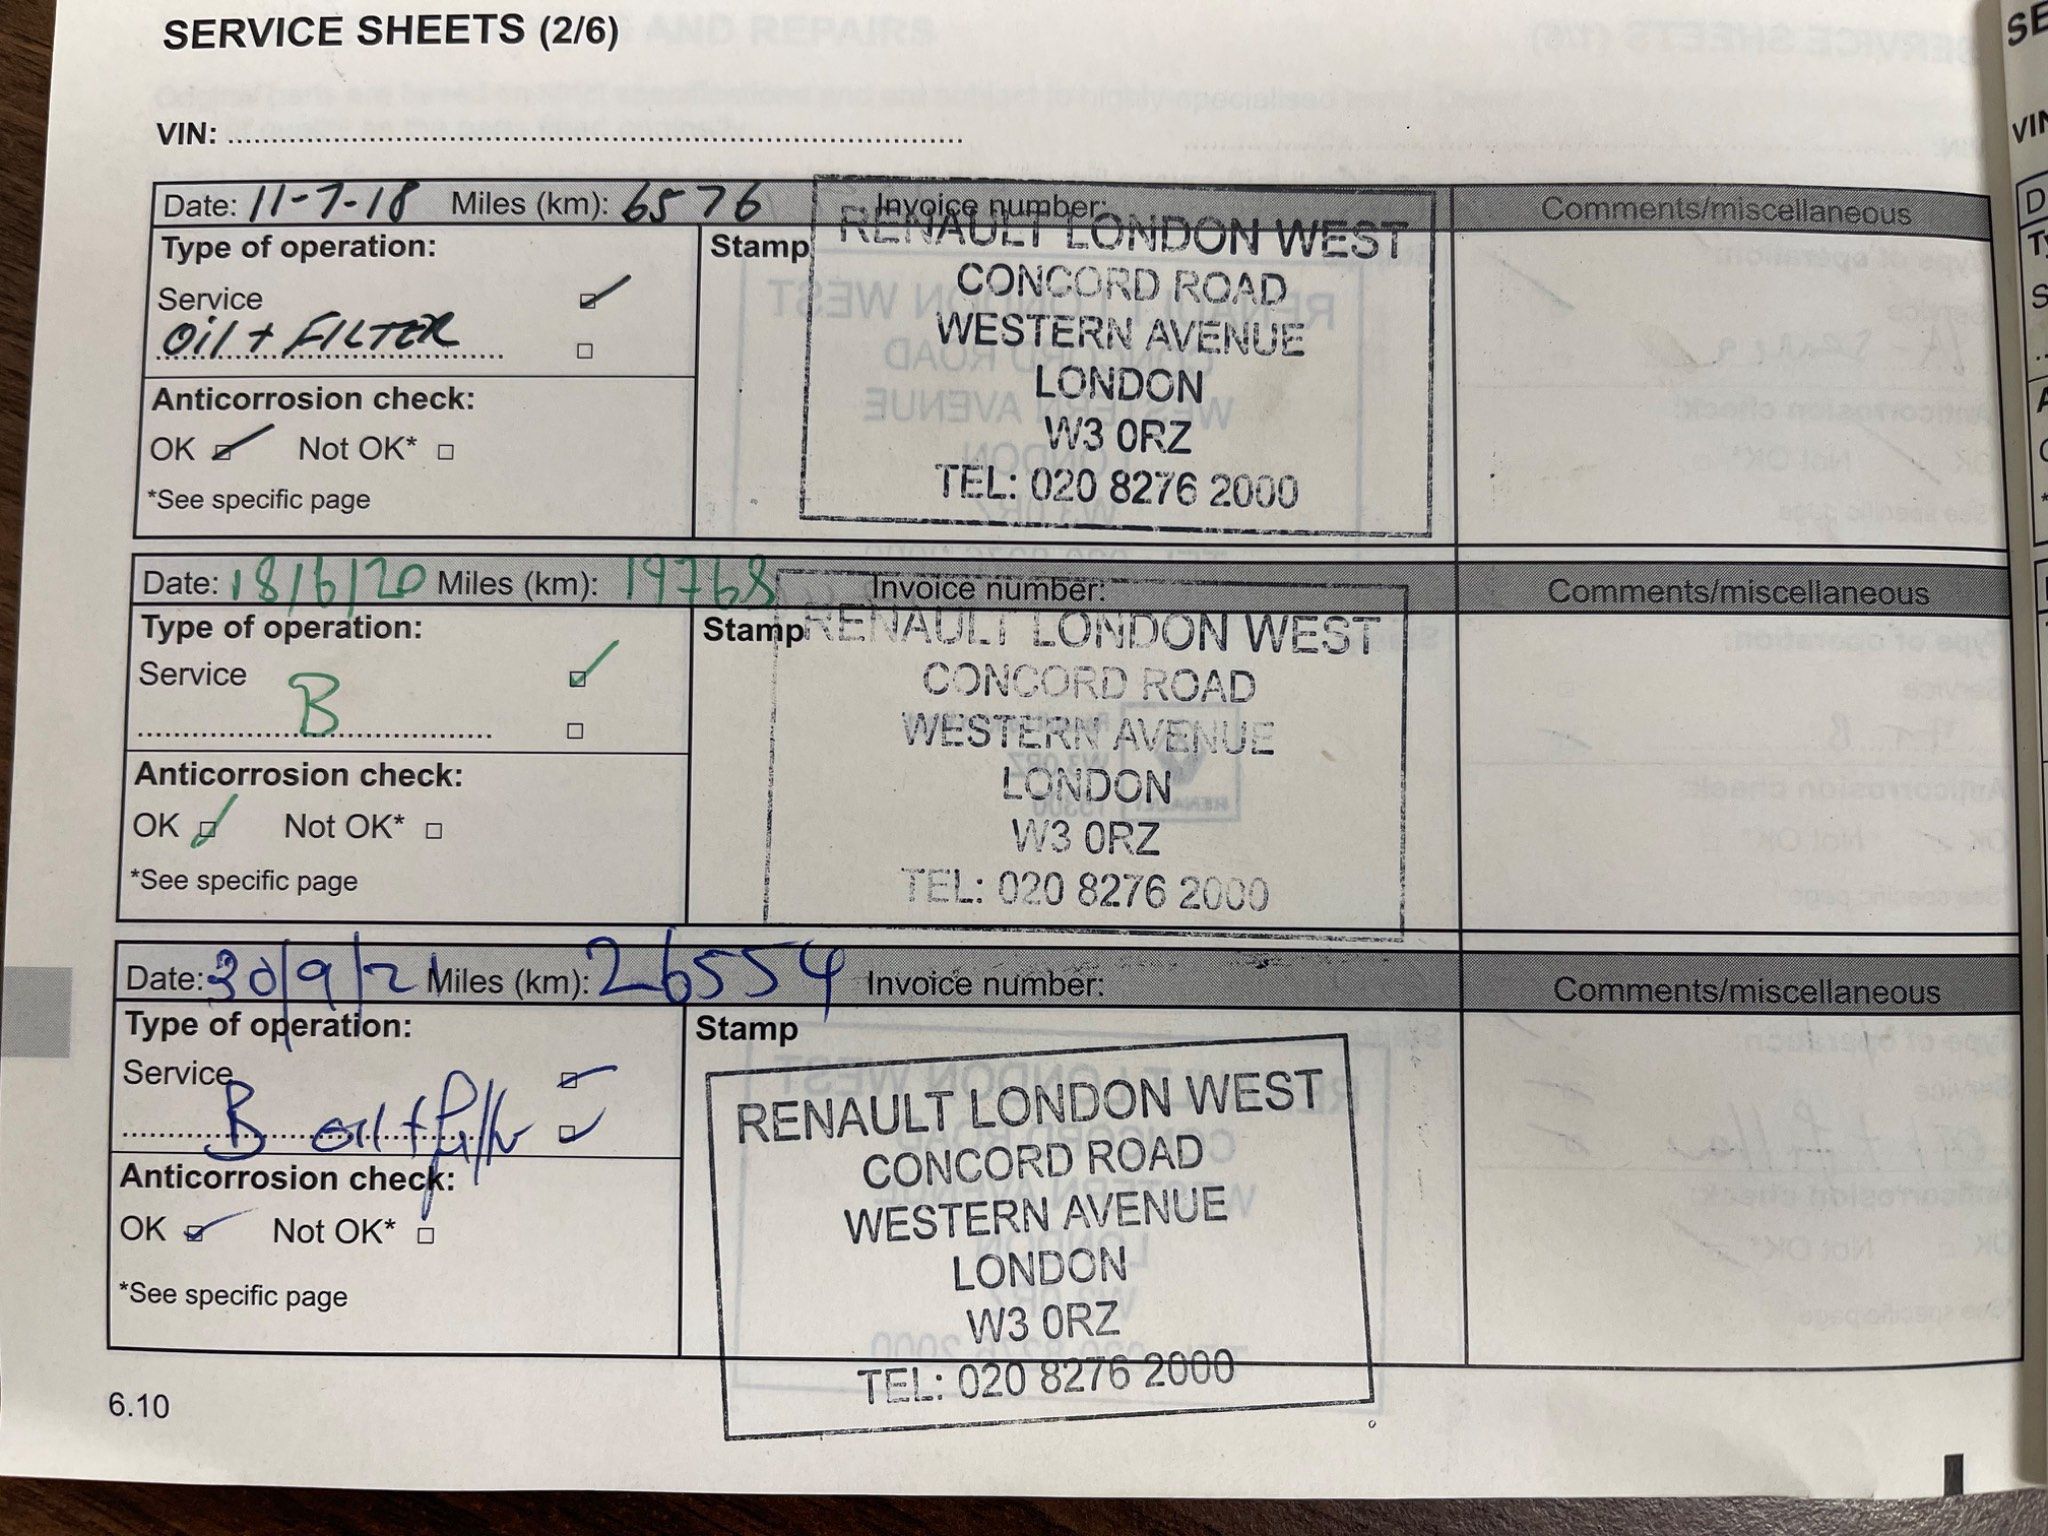 SERVICE SHEETS (2/6)
VIN:
Date: 11-7-18 Miles (km): 6576 Invoice number: Comments/miscellaneous
Type of operation:
Service
Oil + FILTER
Anticorrosion check:
OK Not OK*
*See specific page
Stamp
RENAULT LONDON WEST
CONCORD ROAD
WESTERN AVENUE
LONDON
W3 0RZ
TEL: 020 8276 2000
Date: 18/6/20 Miles (km): 19768 Invoice number: Comments/miscellaneous
Type of operation:
Service
B
Anticorrosion check:
OK Not OK*
*See specific page
Stamp
RENAULT LONDON WEST
CONCORD ROAD
WESTERN AVENUE
LONDON
W3 0RZ
TEL: 020 8276 2000
Date: 30/9/21 Miles (km): 26554 Invoice number: Comments/miscellaneous
Type of operation:
Service
B oil + filter
Anticorrosion check:
OK Not OK*
*See specific page
Stamp
RENAULT LONDON WEST
CONCORD ROAD
WESTERN AVENUE
LONDON
W3 0RZ
TEL: 020 8276 2000
6.10